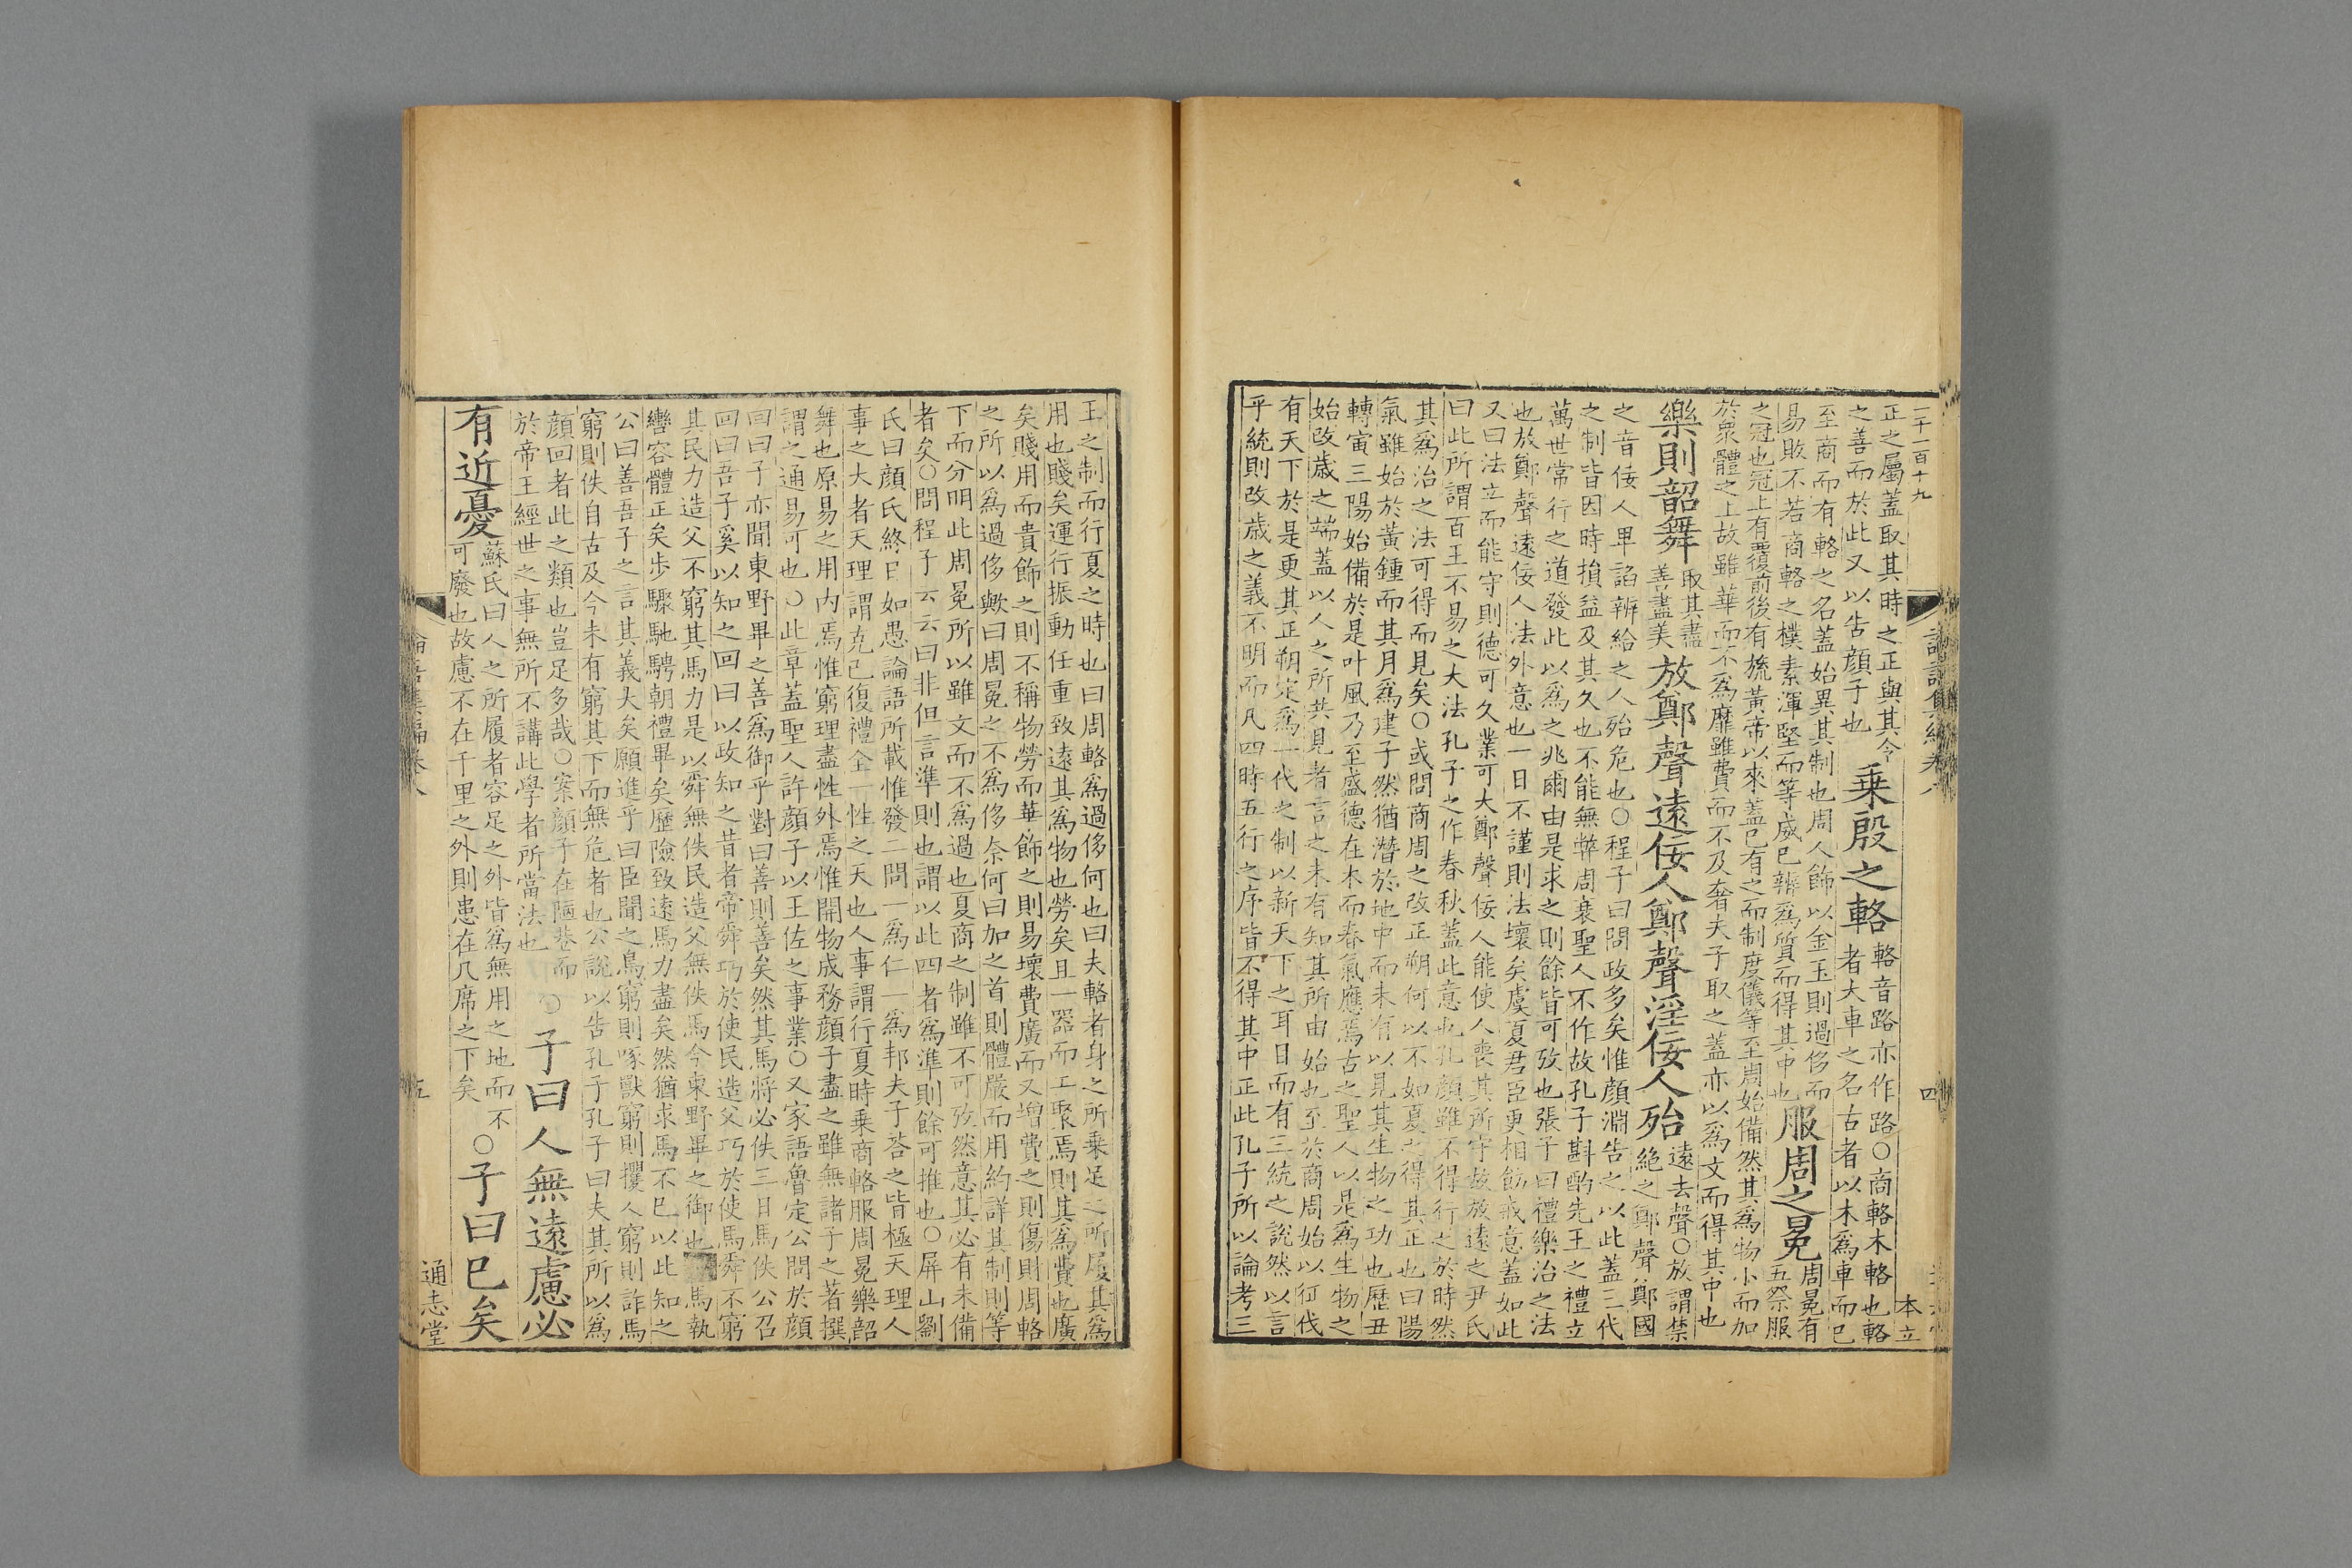 二千一百十九
正之屬蓋取其時之正與其令
之善而於此又以告顔子也
乗殷之輅
輅音路亦作路○商輅木輅也輅
者大車之名古者以木爲車而已
至商而有輅之名蓋始異其制也周人飾以金玉則過侈而
易敗不若商輅之樸素渾堅而等威已辨爲質而得其中也
服周之冕
周冕有
五祭服
之冠也冠上有覆前後有旒黃帝以來蓋已有之而制度儀等至周始備然其爲物小而加
於衆體之上故雖華而不爲靡雖費而不及奢夫子取之蓋亦以爲文而得其中也
樂則韶舞
取其盡
善盡美
放鄭聲遠佞人鄭聲淫佞人殆
遠去聲○放謂禁
絶之鄭聲鄭國
之音佞人卑諂辨給之人殆危也○程子曰問政多矣惟顔淵告之以此蓋三代
之制皆因時損益及其久也不能無弊周衰聖人不作故孔子斟酌先王之禮立
萬世常行之道發此以爲之兆爾由是求之則餘皆可攷也張子曰禮樂治之法
也放鄭聲遠佞人法外意也一日不謹則法壞矣虞夏君臣更相飭戒意蓋如此
又曰法立而能守則德可久業可大鄭聲佞人能使人喪其所守故放遠之尹氏
曰此所謂百王不易之大法孔子之作春秋蓋此意也孔顔雖不得行之於時然
其爲治之法可得而見矣○或問商周之改正朔何以不如夏之得其正也曰陽
氣雖始於黃鍾而其月爲建子然猶潛於地中而未有以見其生物之功也歷丑
轉寅三陽始備於是叶風乃至盛德在木而春氣應焉古之聖人以是爲生物之
始改歲之端蓋以人之所共見者言之未有知其所由始也至於商周始以征伐
有天下於是更其正朔定爲一代之制以新天下之耳目而有三統之說然以言
乎統則改歲之義不明而凡四時五行之序皆不得其中正此孔子所以論考三
四
本立
王之制而行夏之時也曰周輅爲過侈何也曰夫輅者身之所乗足之所履其爲
用也賤矣運行振動任重致遠其爲物也勞矣且一器而工聚焉則其爲費也廣
矣賤用而貴飾之則不稱物勞而華飾之則易壞費廣而又增費之則傷財周輅
之所以爲過侈歟曰周冕之不爲侈奈何曰加之首則體嚴而用約詳其制則等
下而分明此周冕所以雖文而不爲過也夏商之制雖不可攷然意其必有未備
者矣○問程子云云曰非但言準則也謂以此四者爲準則餘可推也○屏山劉
氏曰顔氏終日如愚論語所載惟發二問一爲仁一爲邦夫子荅之皆極天理人
事之大者天理謂克己復禮全一性之天也人事謂行夏時乗商輅服周冕樂韶
舞也原易之用内焉惟窮理盡性外焉惟開物成務顔子盡之雖無諸子之著撰
謂之通易可也○此章蓋聖人許顔子以王佐之事業○又家語魯定公問於顔
回曰子亦聞東野畢之善爲御乎對曰善則善矣然其馬將必佚三日馬佚公召
回曰吾子奚以知之回曰以政知之昔者帝舜巧於使民造父巧於使馬舜不窮
其民力造父不窮其馬力是以舜無佚民造父無佚馬今東野畢之御也馬執
轡容體正矣步驟馳騁朝禮畢矣歷險致遠馬力盡矣然猶求馬不已以此知之
公曰善吾子之言其義大矣願進乎曰臣聞之鳥窮則啄獸窮則攫人窮則詐馬
窮則佚自古及今未有窮其下而無危者也公說以告孔子孔子曰夫其所以爲
顔回者此之類也豈足多哉○案顔子在陋巷而
於帝王經世之事無所不講此學者所當法也
○子曰人無遠慮必
有近憂
蘇氏曰人之所履者容足之外皆爲無用之地而不
可廢也故慮不在千里之外則患在几席之下矣
○子曰已矣
論語集編卷八
五
通志堂